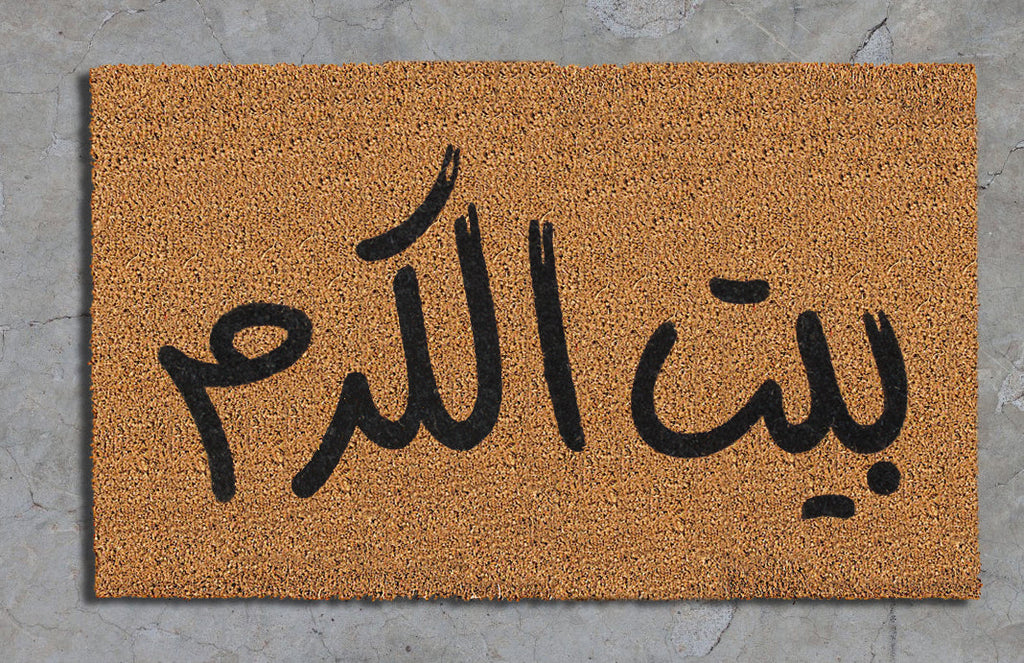 بيت الكرم